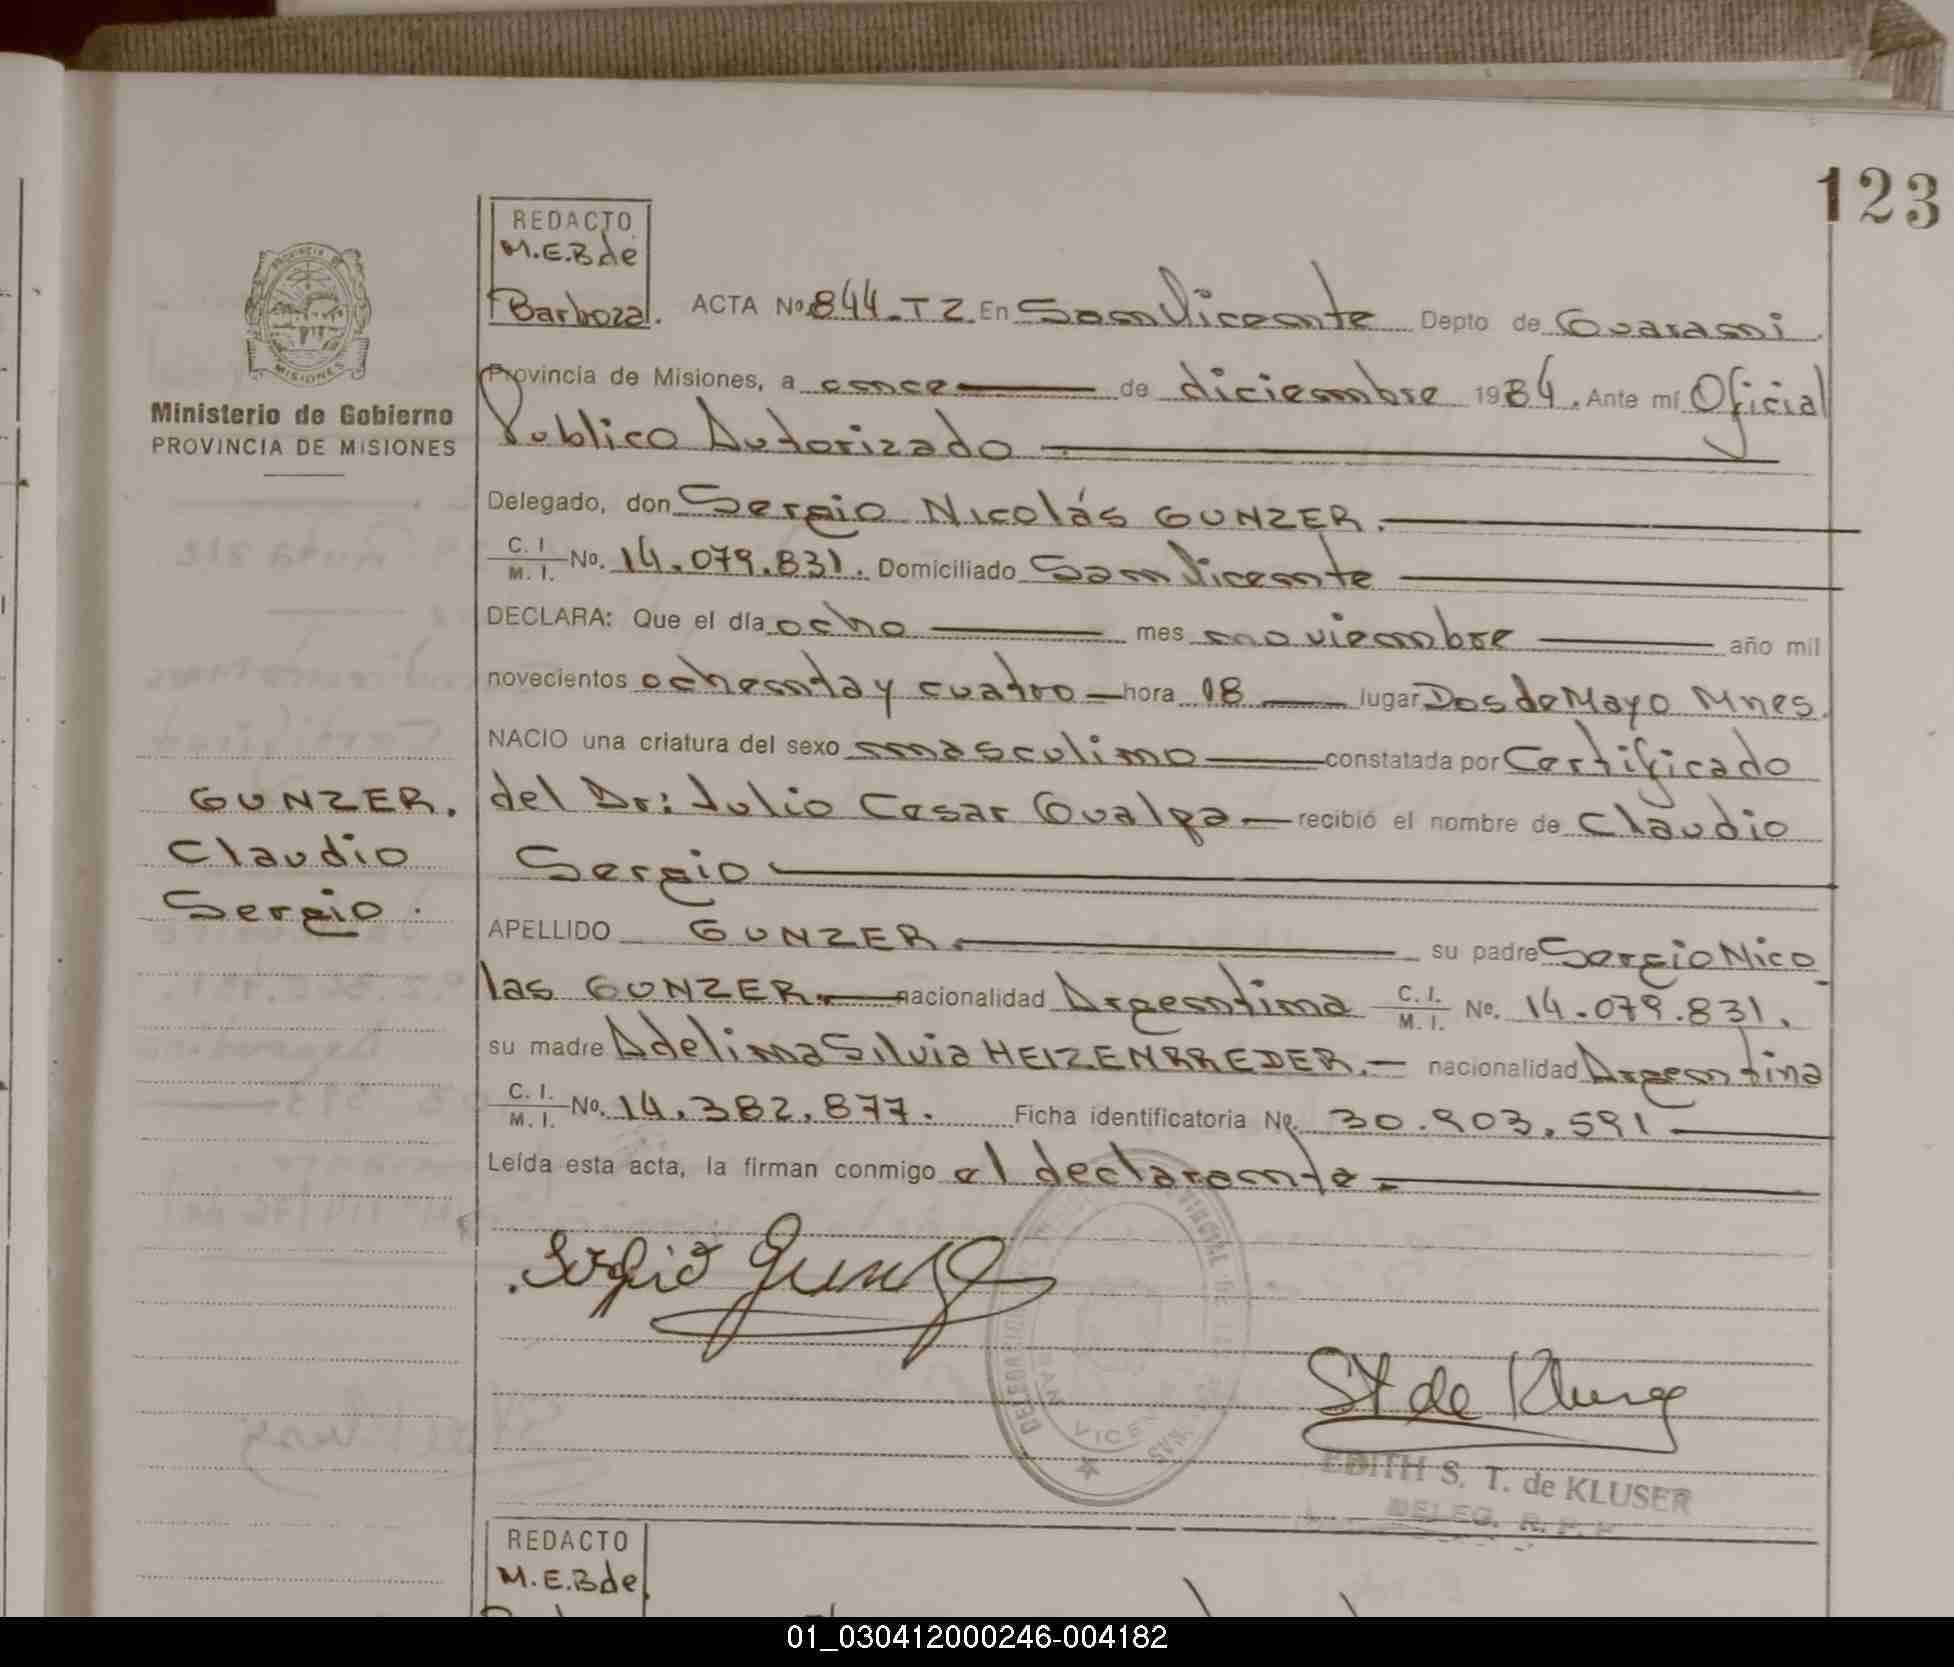 123
REDACTO
M.E.B de
Barboza.
Ministerio de Gobierno
PROVINCIA DE MISIONES
MISIONES
ACTA No. 844.T2 En San Vicente Depto de Guarani
Provincia de Misiones, a once de diciembre 1984. Ante mí Oficial
Publico Autorizado
Delegado, don Sergio Nicolás GUNZER.
C. I. / M. I. No. 14.079.831. Domiciliado San Vicente
DECLARA: Que el día ocho mes noviembre año mil
novecientos ochenta y cuatro hora 18 lugar Dos de Mayo Mnes.
NACIO una criatura del sexo masculino constatada por Certificado
del Dr: Julio Cesar Gualpa recibió el nombre de Claudio
Sergio
GUNZER.
Claudio
Sergio.
APELLIDO GUNZER su padre Sergio Nico
las GUNZER. nacionalidad Argentina C. I. / M. I. No. 14.079.831.
su madre Adelina Silvia HEIZENRREDER. nacionalidad Argentina
C. I. / M. I. No. 14.382.877. Ficha identificatoria No. 30.903.591
Leída esta acta, la firman conmigo el declarante
Sergio Gunzer
St de Kluser
EDITH S. T. de KLUSER
DELEG. R. P. P
REDACTO
M.E.B de
01_030412000246-004182